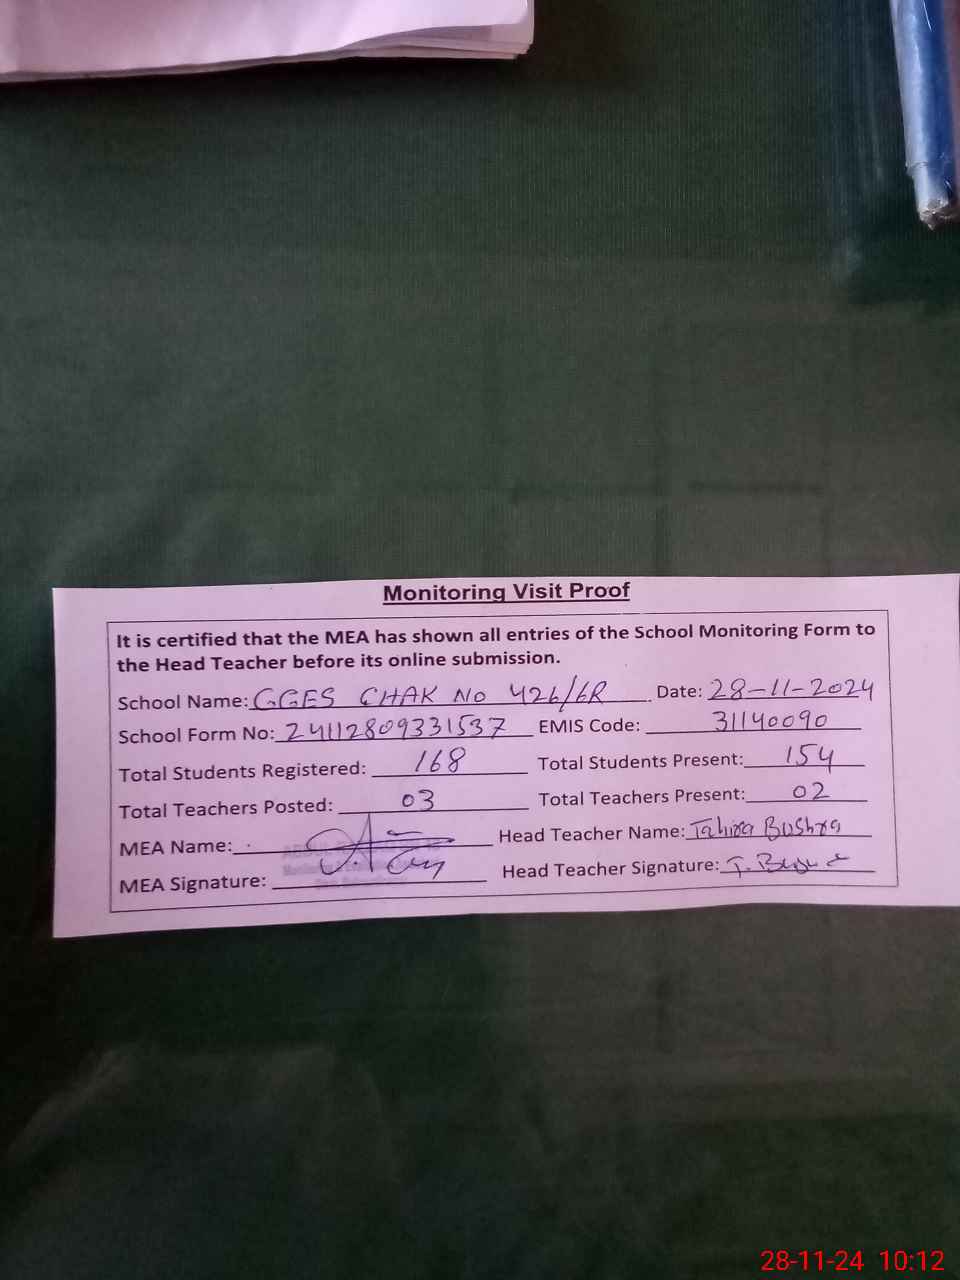 Monitoring Visit Proof
It is certified that the MEA has shown all entries of the School Monitoring Form to
the Head Teacher before its online submission.
School Name: GGES CHAK No 426/6R Date: 28-11-2024
School Form No: 24112809331537 EMIS Code: 31140090
Total Students Registered: 168 Total Students Present: 154
Total Teachers Posted: 03 Total Teachers Present: 02
MEA Name: Head Teacher Name: Tahira Bushra
MEA Signature: Head Teacher Signature: T.
28-11-24 10:12